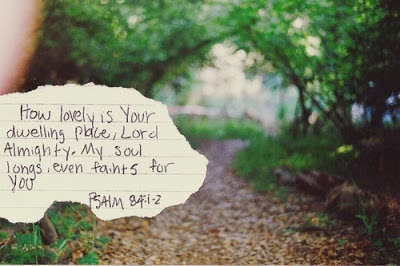 How lovely is Your
dwelling place, Lord
Almighty. My soul
longs, even faints for
You
PSALM 84:1-2